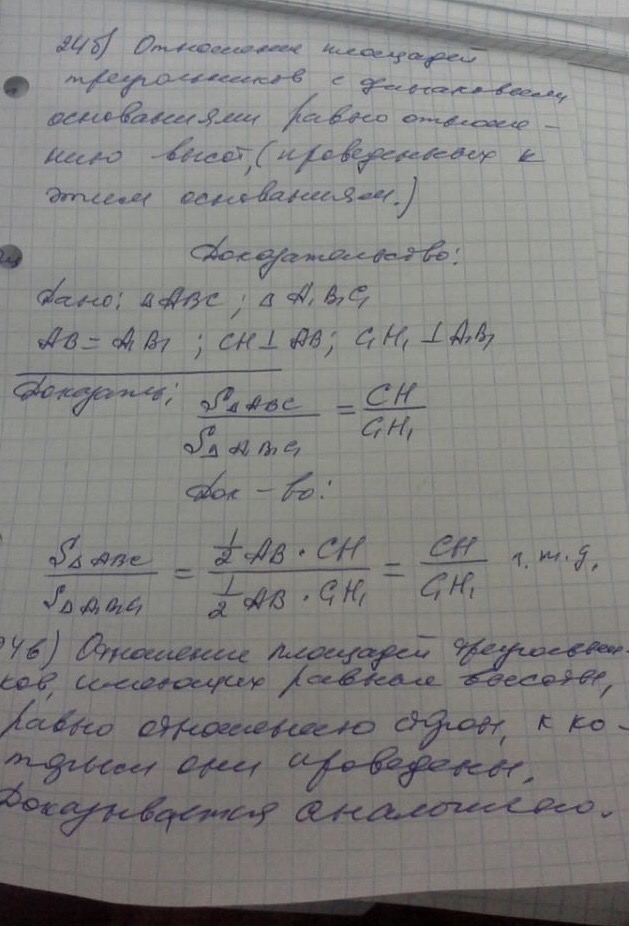 24б) Отношение площадей
треугольников с одинаковыми
основаниями равно отноше-
нию высот, (проведенных к
этим основаниям.)
Доказательство:
Дано: △ABC; △A₁B₁C₁
AB = A₁B₁; CH ⊥ AB; C₁H₁ ⊥ A₁B₁
Доказать: S△ABC / S△A₁B₁C₁ = CH / C₁H₁
Док-во:
S△ABC / S△A₁B₁C₁ = ½ AB · CH / ½ AB · C₁H₁ = CH / C₁H₁ ч.т.д.
24в) Отношение площадей треугольни-
ков, имеющих равные высоты,
равно отношению сторон, к ко-
торым они проведены.
Доказывается аналогично.